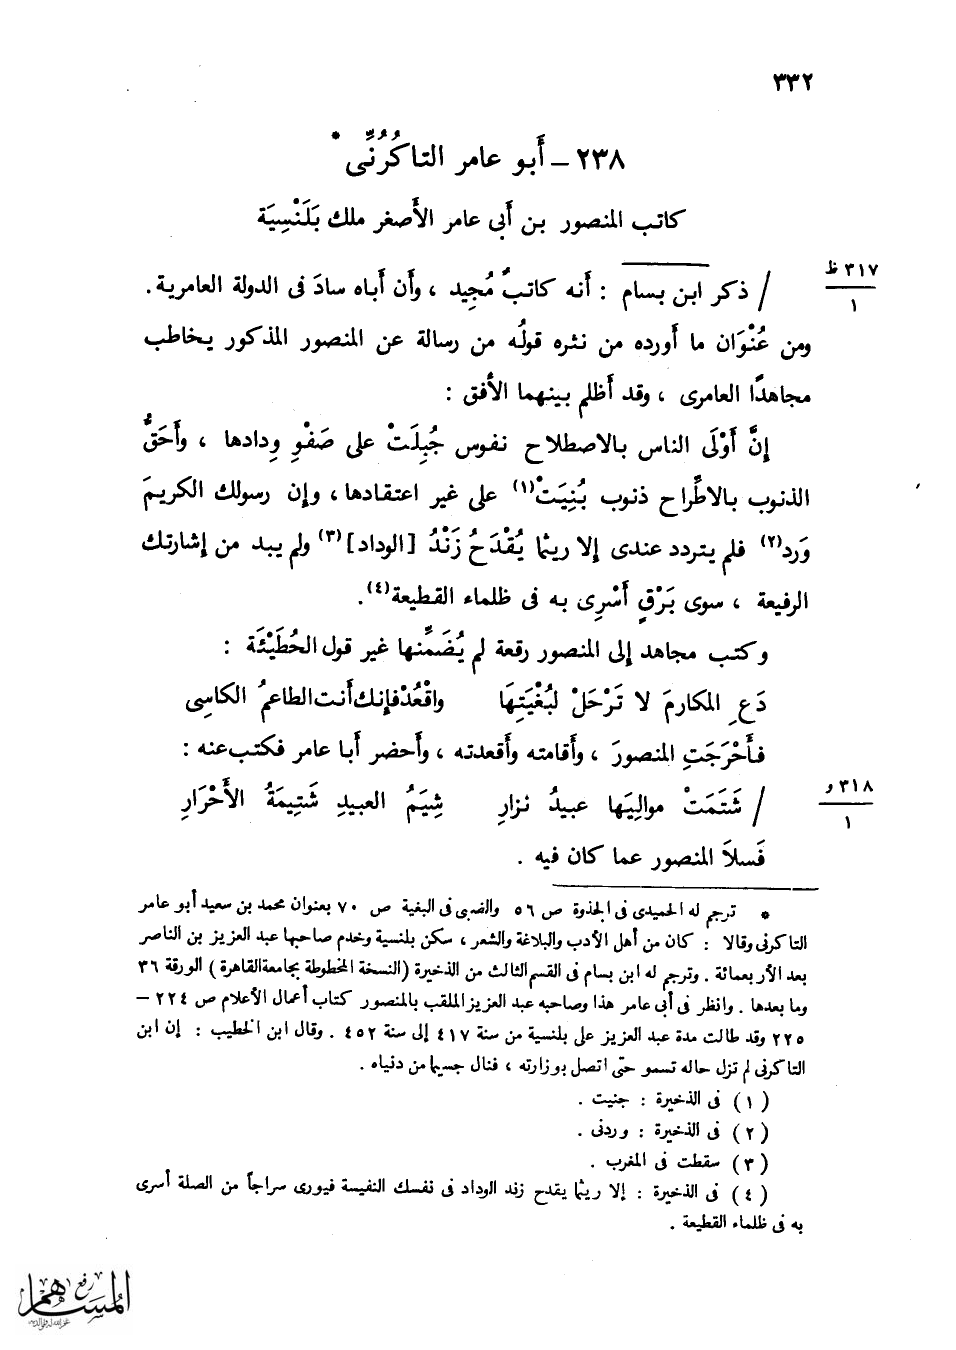 ٣٣٢
٢٣٨ – أَبو عامر التاكُرُنِّى *
كاتب المنصور بن أَبى عامر الأَصغر ملك بَلَنْسِيَة
٣١٧ ظ
١
/ ذكر ابن بسام : أَنه كاتبٌ مُجِيد ، وأَن أَباه سادَ فى الدولة العامرية .
ومن عُنْوَان ما أَورده من نثره قولُه من رسالة عن المنصور المذكور يخاطب
مجاهدًا العامرى ، وقد أَظلم بينهما الأُفق :
إِنَّ أَوْلَى الناس بالاصطلاح نفوس جُبِلَتْ على صَفْوِ وِدادها ، وأَحَقُّ
الذنوب بالاطِّراح ذنوب بُنِيَتْ(١) على غير اعتقادها ، وإن رسولك الكريمَ
وَرد(٢) فلم يتردد عندى إلا ريثما يُقْدَحُ زَنْدُ [الوداد](٣) ولم يبد من إشارتك
الرفيعة ، سوى بَرْقٍ أَسْرِى به فى ظلماء القطيعة(٤).
وكتب مجاهد إلى المنصور رقعة لم يُضَمِّنها غير قول الحُطَيْئَة :
دَعِ المكارمَ لا تَرْحَلْ لبُغْيَتِهَا واقْعُدْ فإنك أَنت الطاعمُ الكاسِى
فأَحْرَجَتِ المنصورَ ، وأَقامته وأَقعدته ، وأَحضر أَبا عامر فكتب عنه :
٣١٨ و
١
/ شَتَمَتْ موالِيَها عبيدُ نزارِ شِيَمُ العبيدِ شَتِيمَةُ الأَحْرَارِ
فَسلاَ المنصور عما كان فيه .
* ترجم له الحميدى فى الجذوة ص ٥٦ والضبى فى البغية ص ٧٠ بعنوان محمد بن سعيد أبو عامر
التاكرنى وقالا : كان من أهل الأدب والبلاغة والشعر ، سكن بلنسية وخدم صاحبها عبد العزيز بن الناصر
بعد الأربعمائة . وترجم له ابن بسام فى القسم الثالث من الذخيرة (النسخة المخطوطة بجامعة القاهرة) الورقة ٣٦
وما بعدها . وانظر فى أبى عامر هذا وصاحبه عبد العزيز الملقب بالمنصور كتاب أعمال الأعلام ص ٢٢٤ –
٢٢٥ وقد طالت مدة عبد العزيز على بلنسية من سنة ٤١٧ إلى سنة ٤٥٢ . وقال ابن الخطيب : إن ابن
التاكرنى لم تزل حاله تسمو حتى اتصل بوزارته ، فنال جسيما من دنياه .
(١) فى الذخيرة : جنيت .
(٢) فى الذخيرة : وردنى .
(٣) سقطت فى المغرب .
(٤) فى الذخيرة : إلا ريثما يقدح زند الوداد فى نفسك النفيسة فيورى سراجاً من الصلة أسرى
به فى ظلماء القطيعة .
رفع
المساهم